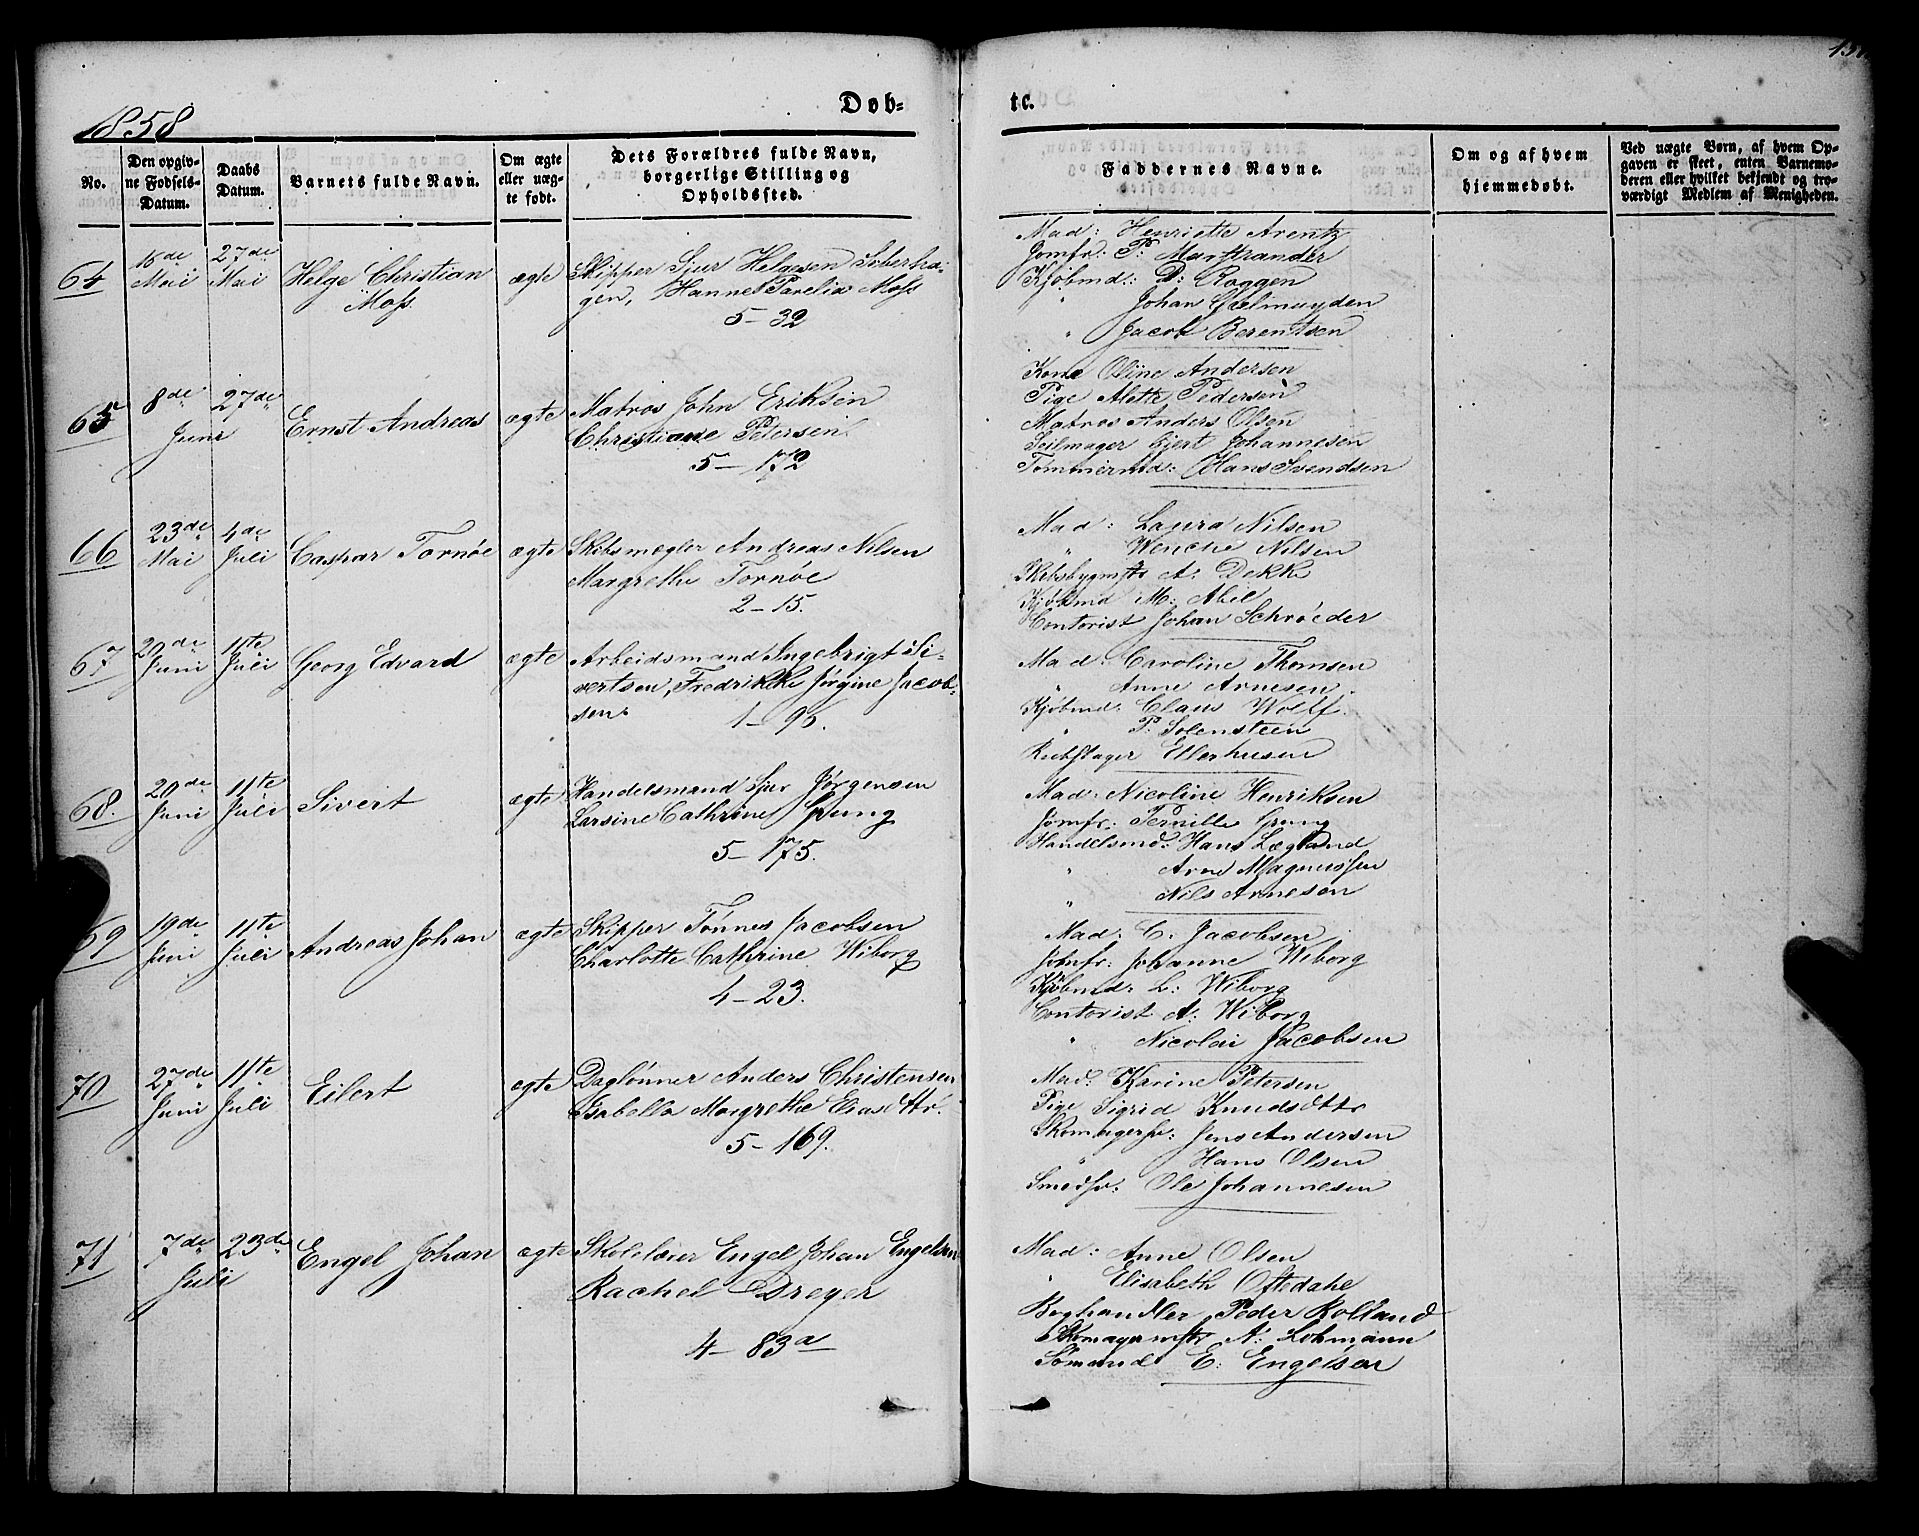 1858
Døb-
No.
Den opgiv-
ne Fødsels-
Datum.
Daabs
Datum.
Barnets fulde Navn.
Om ægte
eller uæg-
te født.
Dets Forældres fulde Navn,
borgerlige Stilling og
Opholdssted.
64
Mai
27de
Mai
Helge Christian
Moss
ægte
Skipper Sjur Helgesen Silerha-
gen, Hanne Parelia Moss
5-32
65
8de
Juni
27de
Ernst Andreas
ægte
Matros John Eriksen
Christiane Petersen
5-172
66
23de
Mai
4de
Juli
Caspar Tornøe
ægte
Skibsmægler Andreas Nilsen
Margrethe Tornøe
2-15.
67
20de
Juni
11te
Juli
Georg Edvard
ægte
Arbeidsmand Ingebrigt Si-
vertsen, Fredrikke Jørgine Jacob-
sen
1-95.
68.
20de
Juni
11te
Juli
Sivert
ægte
Handelsmand Sjur Jørgensen
Larsine Cathrine Grung
5-175.
69
19de
Juni
11te
Juli
Andreas Johan
ægte
Skipper Tønnes Jacobsen
Charlotte Cathrine Wiborg
4-23.
70
27de
Juni
11te
Juli
Eilert
ægte
Daglønner Anders Christensen
Isabella Margrethe Eliasdttr.
5-169.
71
7de
Juli
23de
Engel Johan
ægte
Skolelærer Engel Johan Engelsen
Rachel Dreyer
4-83a
te.
Faddernes Navne.
Om og af hvem
hjemmedøbt.
Ved uægte Børn, af hvem Op-
gaven er skeet, enten Barnemo-
deren eller hvilket bekjendt og tro-
værdigt Medlem af Menigheden.
Mad: Henriette Arentz
Jomfr: P: Martrander
Kjøbmd: D: Roggen
" Johan Gjelmuyden
" Jacob Berentsen
Kone Oline Andersen
Pige Alette Pedersen
Matros Anders Olsen
Seilmager Gjert Johannesen
Tømmermd: Hans Svendsen
Mad: Laura Nilsen
" Wenche Nilsen
Skibsbygmstr A. Dekke
Kjøbmd M: Abel
Contorist Johan Schrøeder
Mad: Caroline Thomsen
" Anne Arnesen.
Kjøbmd: Claus Wolff.
" P. Solensteen
Rebslager Ellerhusen
Mad: Nicoline Henriksen
Jomfr: Pernille Grung
Handelsmd: Hans Lægland
" Arne Magnussen
" Nils Arnesen
Mad: C. Jacobsen
Jomfr: Johanne Wiborg
Kjøbmd: L: Wiborg
Contorist A: Wiborg
" Nicolai Jacobsen
Mad: Karine Petersen
Pige Sigrid Knudsdttr
Skomagersv: Jens Andersen
" Hans Olsen
Smedsv: Ole Johannesen
Mad: Anne Olsen
" Elisabeth Oftedahl
Boghandler Peder Rolland
Skomagermstr A: Lohmann
Sømand E: Engelsen